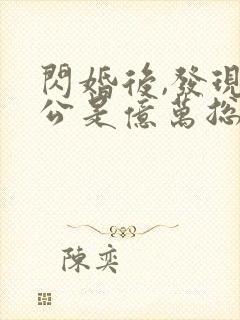 閃婚後,發現
公是億萬総
陳奕